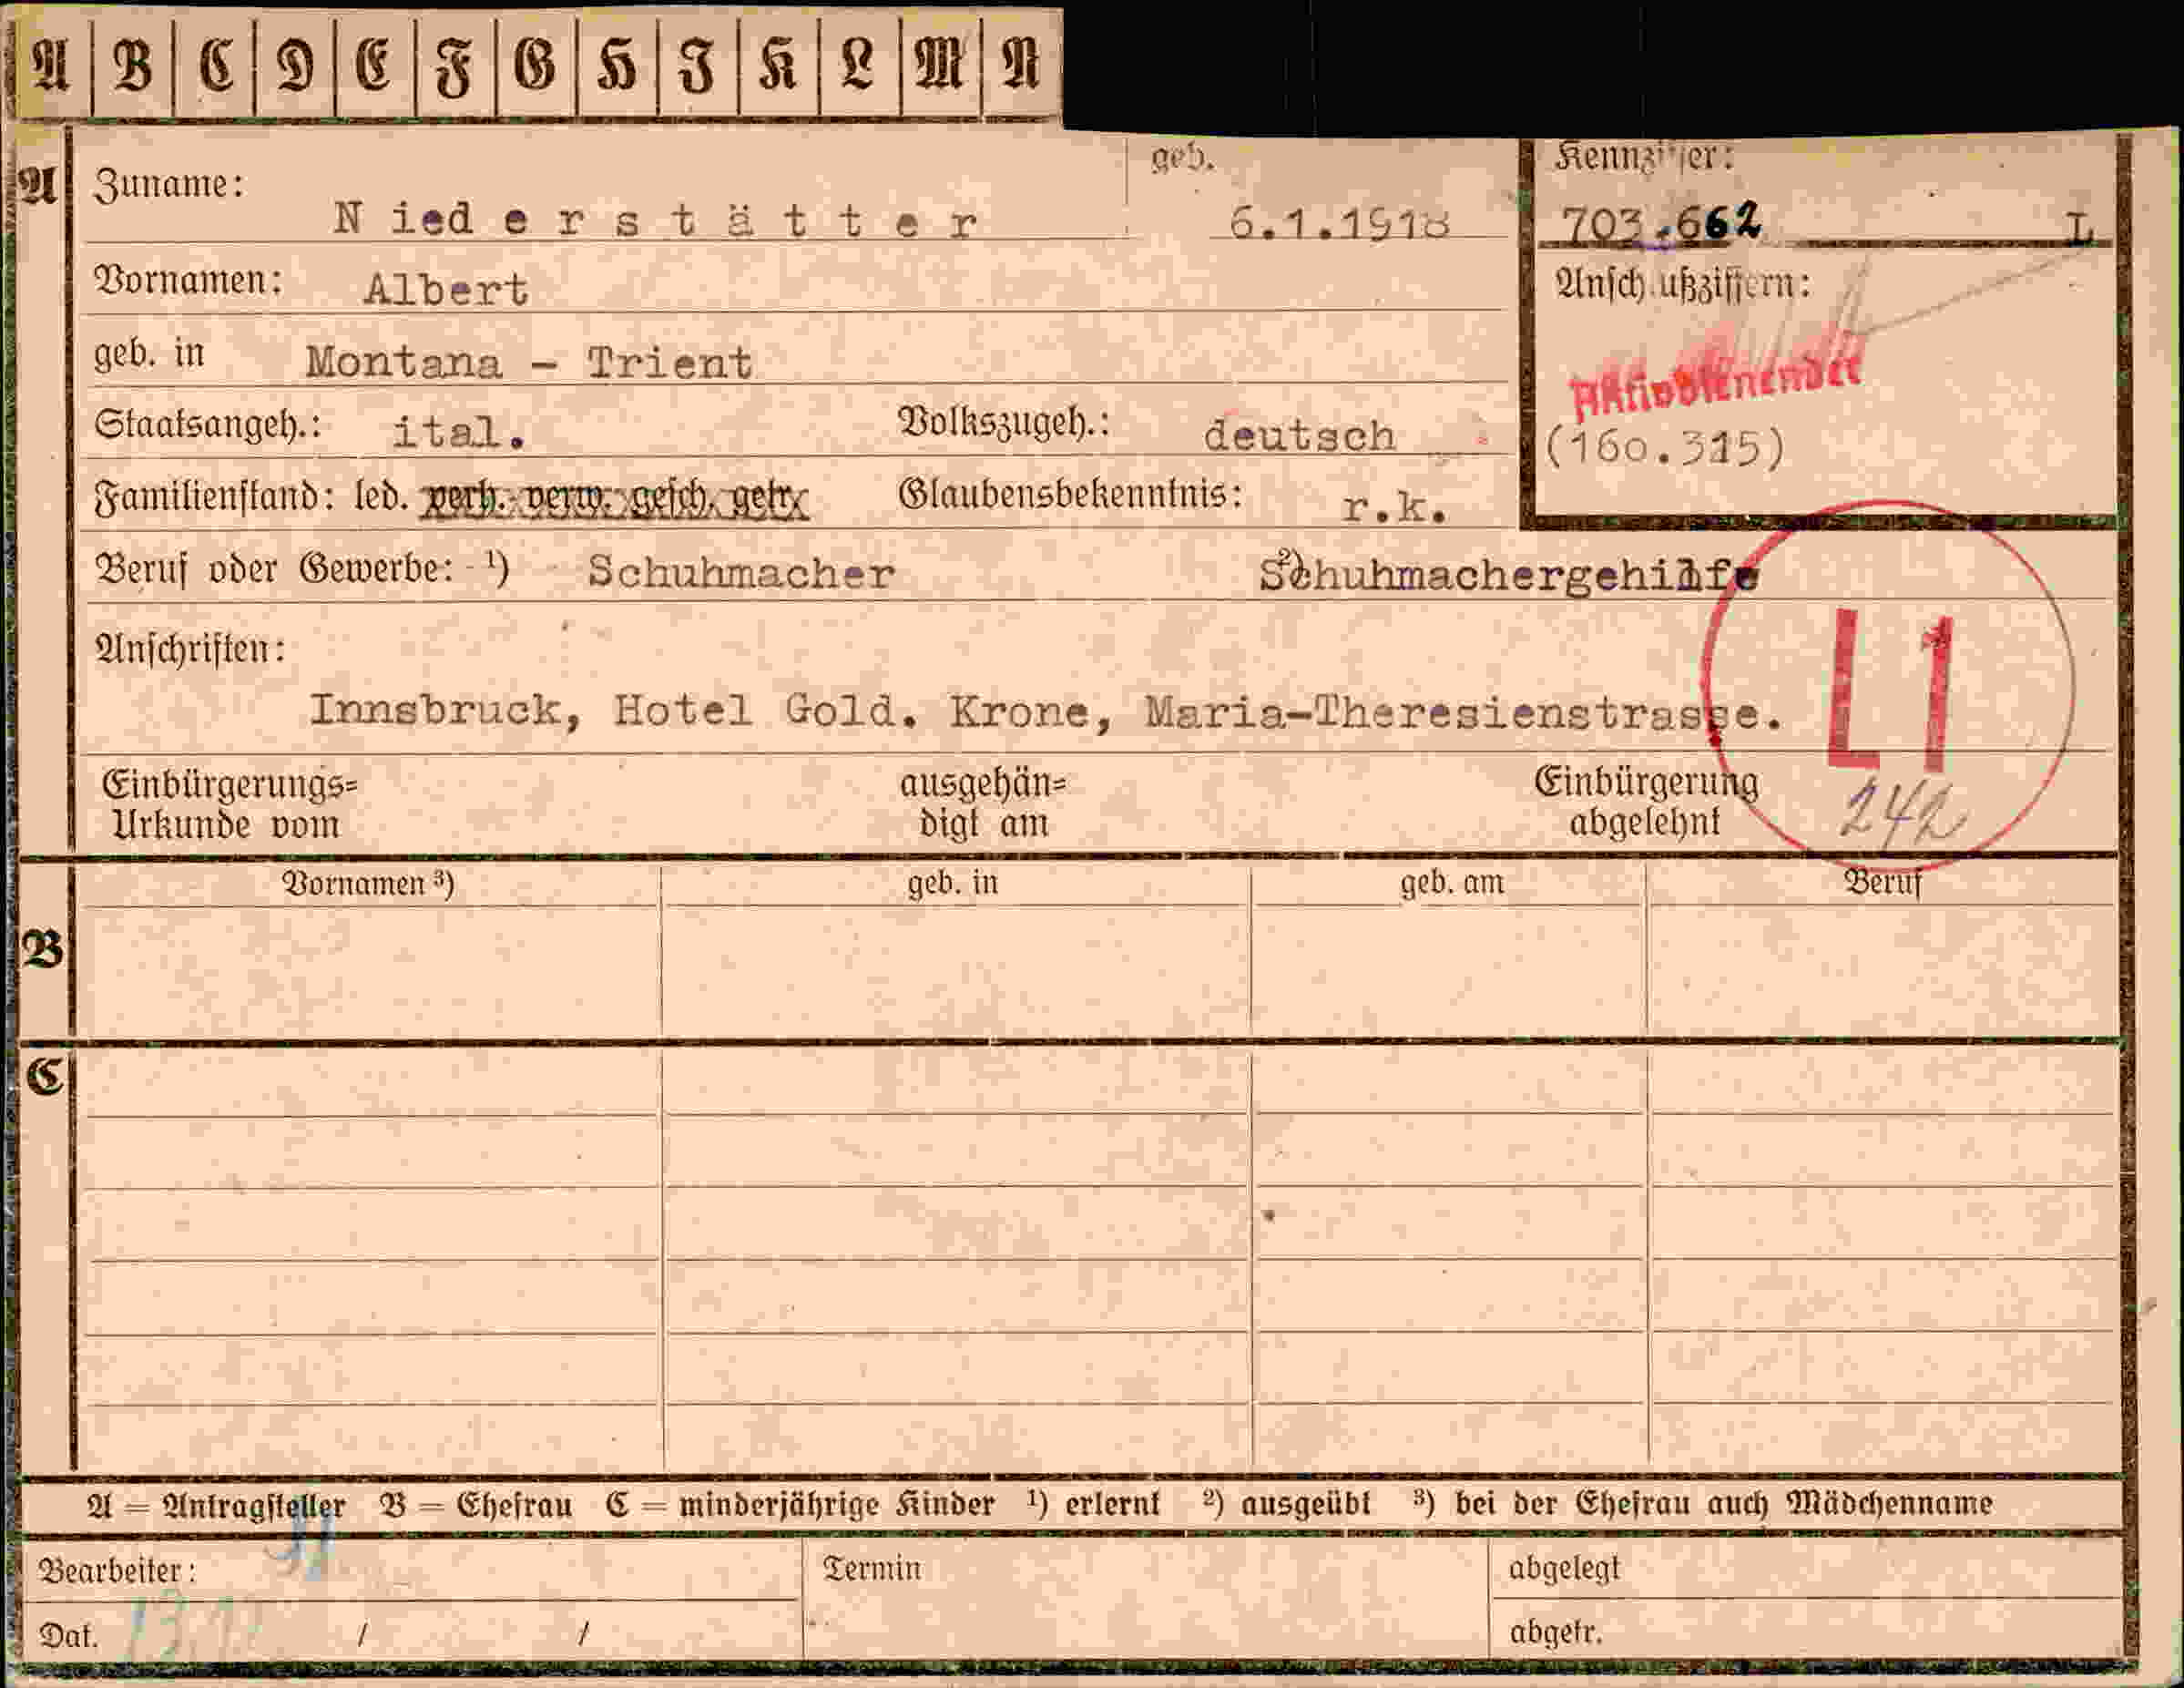 A B C D E F G H I K L M N
A Zuname: Niederstätter geb. 6.1.1918
Kennziffer: 703.662 L
Vornamen: Albert
Anschlußziffern:
geb. in Montana - Trient
Aktivdienender
Staatsangeh.: ital. Volkszugeh.: deutsch
(160.315)
Familienstand: led. verh. verw. gesch. getr. Glaubensbekenntnis: r.k.
Beruf oder Gewerbe: ¹) Schuhmacher ²) Schuhmachergehilfe
Anschriften:
L1
Innsbruck, Hotel Gold. Krone, Maria-Theresienstrasse.
Einbürgerungs= ausgehän= Einbürgerung
Urkunde vom digt am abgelehnt 242
Vornamen ³) geb. in geb. am Beruf
B
C
A = Antragsteller B = Ehefrau C = minderjährige Kinder ¹) erlernt ²) ausgeübt ³) bei der Ehefrau auch Mädchenname
Bearbeiter: Termin abgelegt
Dat. / / abgetr.